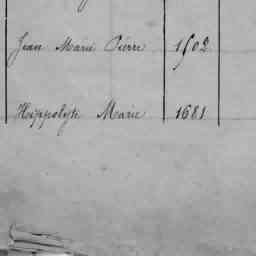 Jean Marie Pierre 1502
Hyppolyte Marie 1681